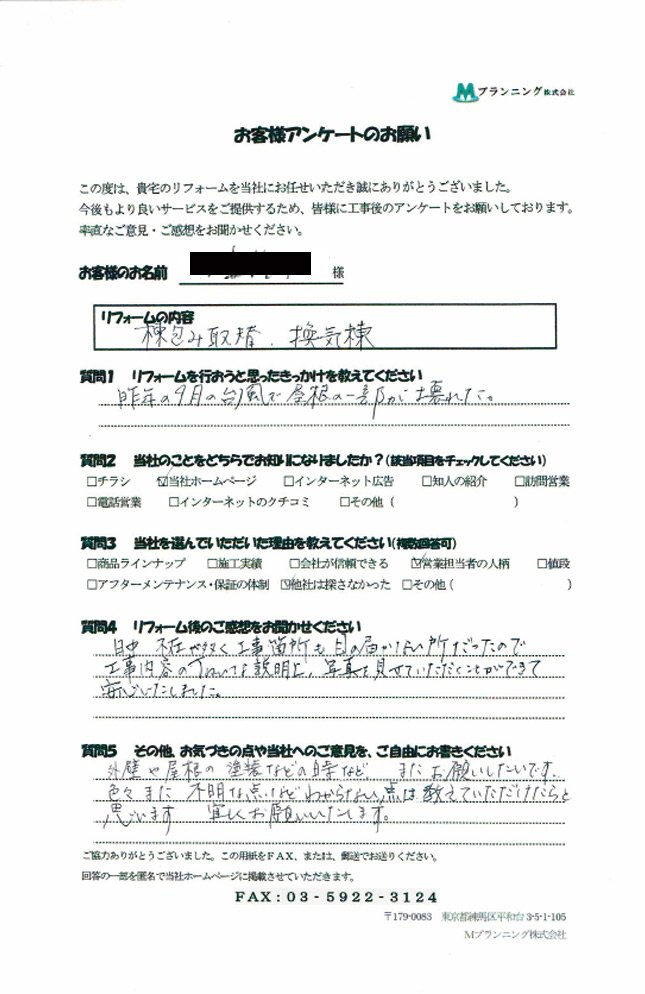 Mプランニング株式会社
お客様アンケートのお願い
この度は、貴宅のリフォームを当社にお任せいただき誠にありがとうございました。
今後もより良いサービスをご提供するため、皆様に工事後のアンケートをお願いしております。
率直なご意見・ご感想をお聞かせください。
お客様のお名前 様
リフォームの内容
棟包み取替、換気棟
質問1 リフォームを行おうと思ったきっかけを教えてください
昨年の9月の台風で屋根の一部が壊れた。
質問2 当社のことをどちらでお知りになりましたか?(該当項目をチェックしてください)
□チラシ ☑当社ホームページ □インターネット広告 □知人の紹介 □訪問営業
□電話営業 □インターネットのクチコミ □その他( )
質問3 当社を選んでいただいた理由を教えてください(複数回答可)
□商品ラインナップ □施工実績 □会社が信頼できる ☑営業担当者の人柄 □値段
□アフターメンテナンス・保証の体制 ☑他社は探さなかった □その他( )
質問4 リフォーム後のご感想をお聞かせください
日中 不在が多く工事箇所も目の届かない所だったので
工事内容のていねいな説明と、写真を見せていただくことができて
安心いたしました。
質問5 その他、お気づきの点や当社へのご意見を、ご自由にお書きください
外壁や屋根の塗装などの時など、またお願いしたいです。
色々また 不明な点などわからない点は教えていただけたらと
思います 宜しくお願いいたします。
ご協力ありがとうございました。この用紙をFAX、または、郵送でお送りください。
回答の一部を匿名で当社ホームページに掲載させていただきます。
FAX:03-5922-3124
〒179-0083 東京都練馬区平和台3-5-1-105
Mプランニング株式会社